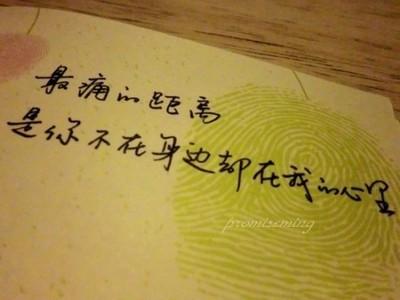 最痛的距离
是你不在身边却在我的心里
promiseming